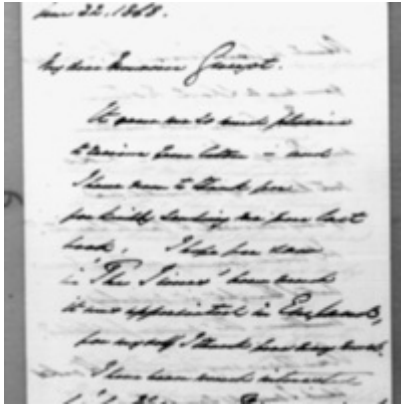 June 22. 1868.
My dear Monsieur Guizot.
It gave me so much pleasure
to receive your letter - and
I have now to thank you
for kindly sending me your last
book. I hope you saw
in 'The Times' how much
it was appreciated in England,
for myself I thank you very much.
I have been much interested